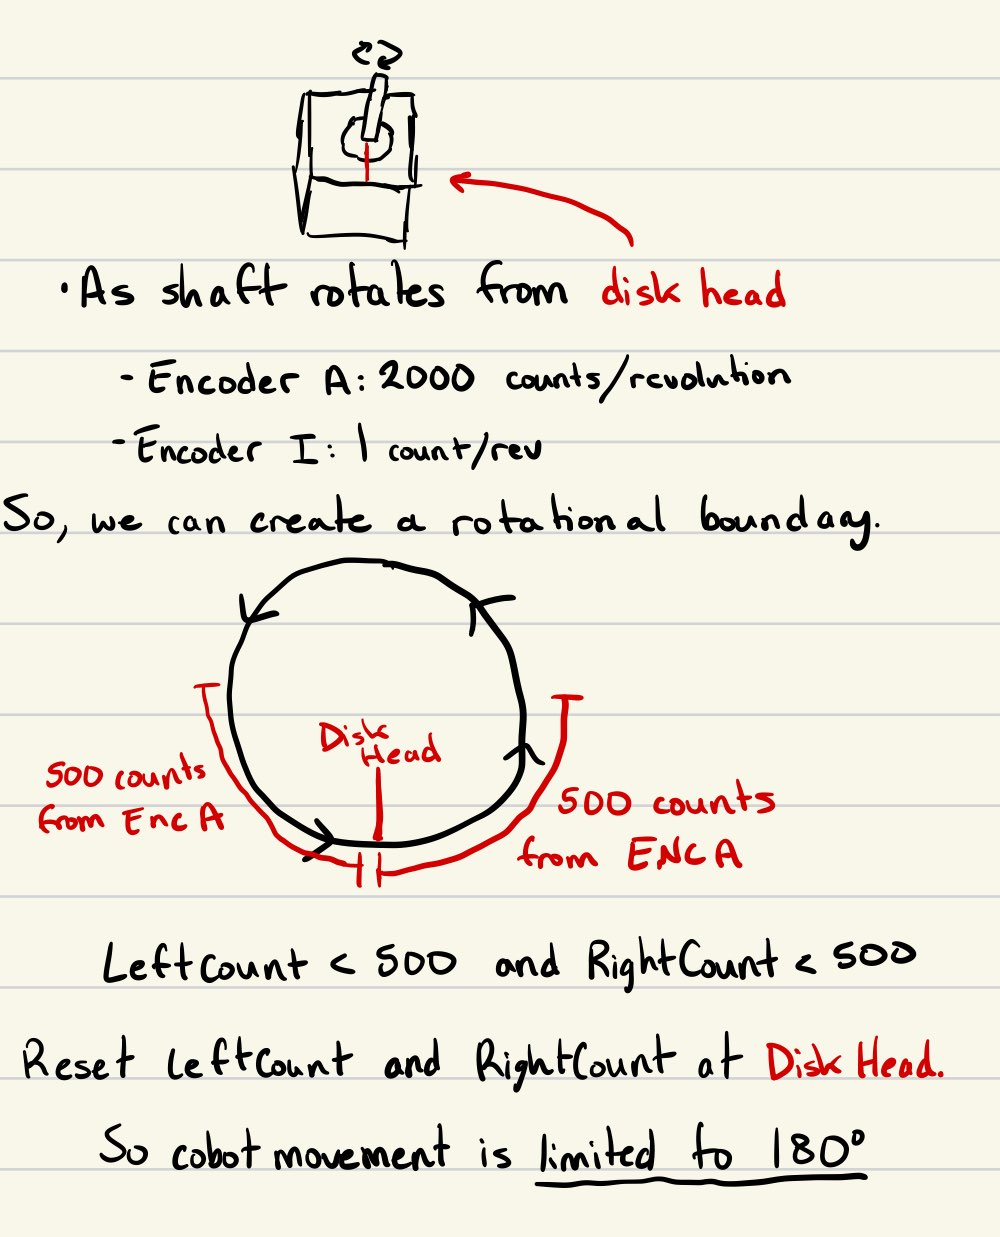 • As shaft rotates from disk head
- Encoder A: 2000 counts/revolution
- Encoder I: 1 count/rev
So, we can create a rotational boundary.
Disk
Head
500 counts
from Enc A
500 counts
from ENC A
Leftcount < 500 and RightCount < 500
Reset LeftCount and RightCount at Disk Head.
So cobot movement is limited to 180°